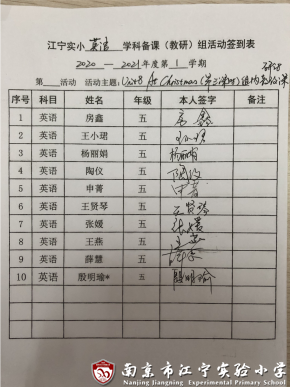 江宁实小 英语 学科备课（教研）组活动签到表
2020 — 2021年度第 1 学期
第 活动 活动主题：Unit8 At Christmas（第三课时）
序号 科目 姓名 年级 本人签字 备注
1 英语 房鑫 五 房鑫
2 英语 王小珺 五 王小珺
3 英语 杨丽娟 五 杨丽娟
4 英语 陶仪 五 陶仪
5 英语 申菁 五 申菁
6 英语 王贤琴 五 王贤琴
7 英语 张媛 五 张媛
8 英语 王燕 五 王燕
9 英语 薛慧 五
10 英语 殷明瑜* 五 殷明瑜
南京市江宁实验小学
Nanjing Jiangning Experimental Primary School